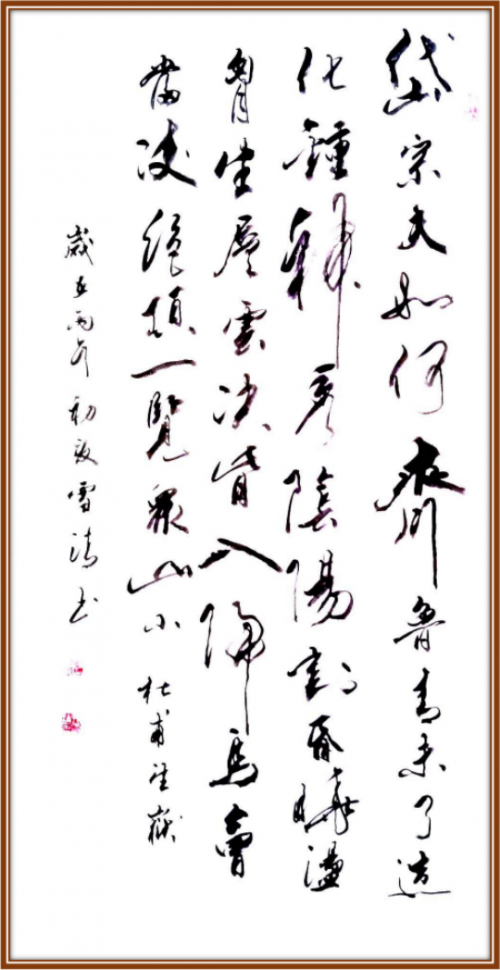 岱宗夫如何齊魯青未了造
化鍾神秀陰陽割昏曉盪
胷生層雲決眥入歸鳥會
當凌絕頂一覽眾山小 杜甫望嶽
歲在丙午初夏雪清书